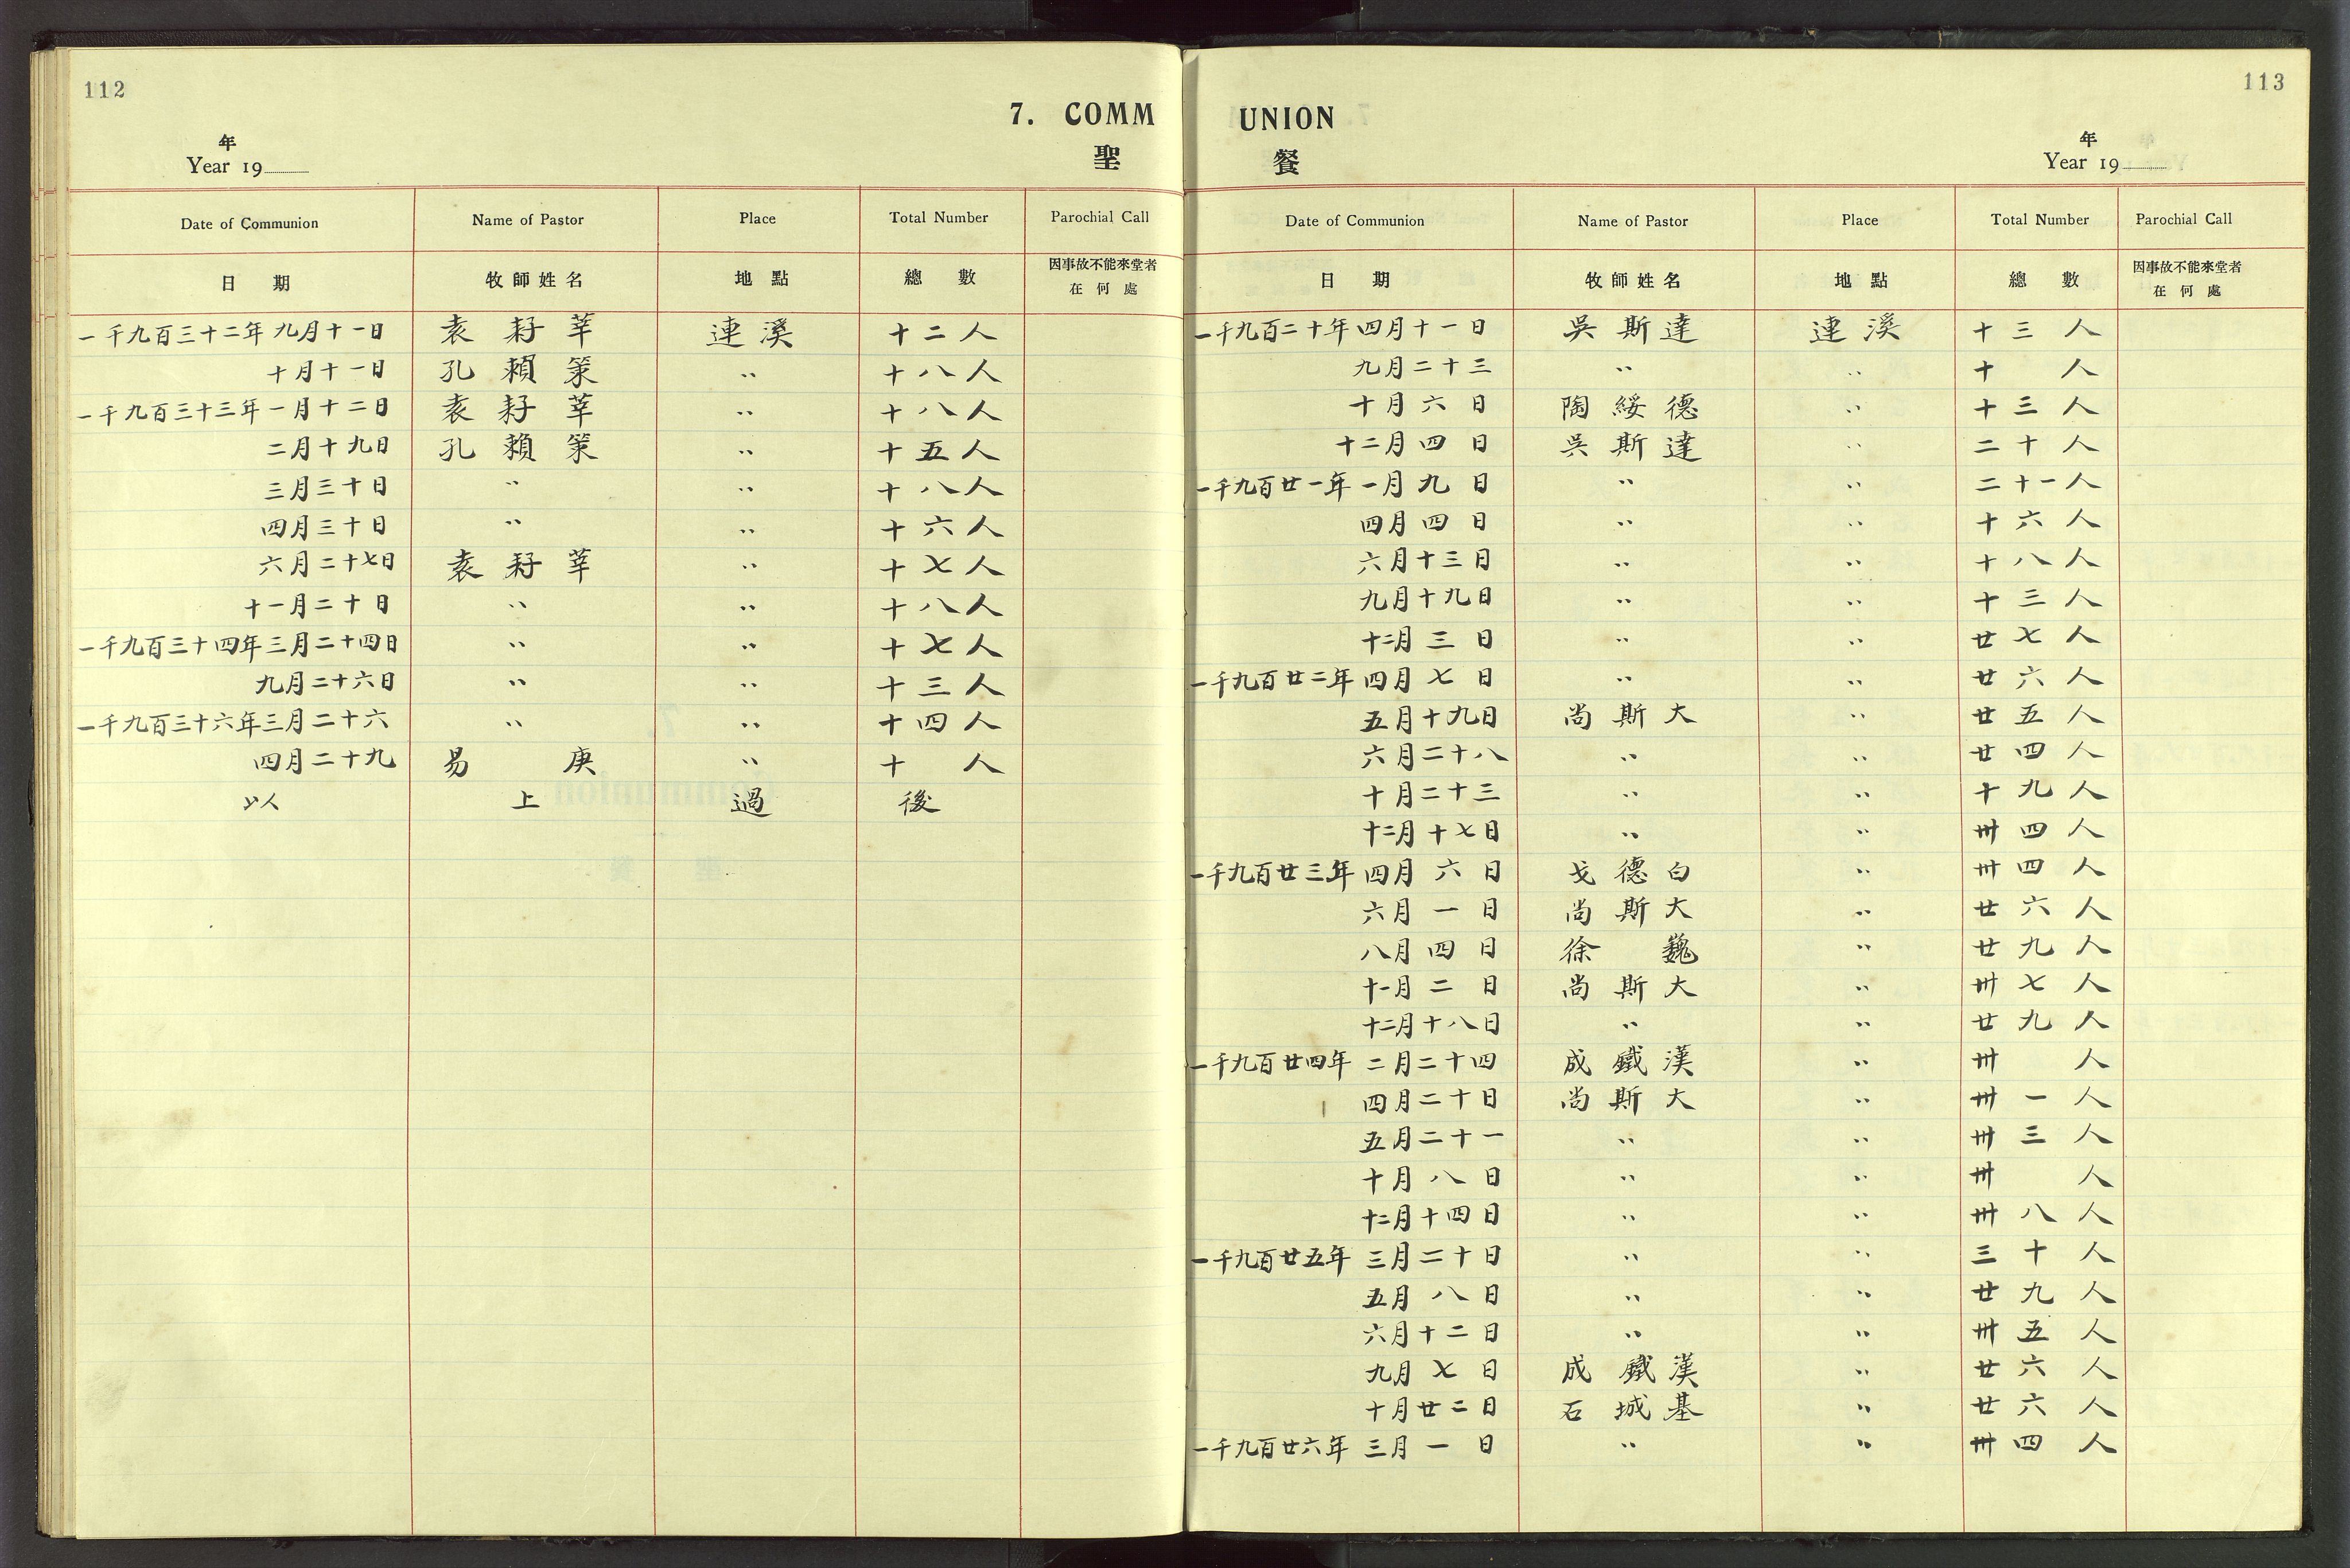 112
7. COMM
年
Year 19
聖
Date of Communion Name of Pastor Place Total Number Parochial Call
日 期 牧師姓名 地點 總數 因事故不能來堂者
在何處
一千九百三十二年 九月十一日 袁籽莘 連溪 十二人
十月十一日 孔賴策 〃 十八人
一千九百三十三年 一月十二日 袁籽莘 〃 十八人
二月十九日 孔賴策 〃 十五人
三月三十日 〃 〃 十八人
四月三十日 〃 〃 十六人
六月二十七日 袁籽莘 〃 十七人
十一月二十日 〃 〃 十八人
一千九百三十四年 三月二十四日 〃 〃 十七人
九月二十六日 〃 〃 十三人
一千九百三十六年 三月二十六 〃 〃 十四人
四月二十九 易庚 〃 十人
以上過後
113
UNION
年
Year 19
餐
Date of Communion Name of Pastor Place Total Number Parochial Call
日 期 牧師姓名 地點 總數 因事故不能來堂者
在何處
一千九百二十年 四月十一日 吳斯達 連溪 十三人
九月二十三 〃 〃 十人
十月六日 陶綏德 〃 十三人
十二月四日 吳斯達 〃 二十人
一千九百廿一年 一月九日 〃 〃 二十一人
四月四日 〃 〃 十六人
六月十三日 〃 〃 十八人
九月十九日 〃 〃 十三人
十二月三日 〃 〃 廿七人
一千九百廿二年 四月七日 〃 〃 廿六人
五月十九日 尚斯大 〃 廿五人
六月二十八 〃 〃 廿四人
十月二十三 〃 〃 十九人
十二月十七日 〃 〃 卅四人
一千九百廿三年 四月六日 戈德白 〃 卅四人
六月一日 尚斯大 〃 廿六人
八月四日 徐巍 〃 廿九人
十一月二日 尚斯大 〃 卅七人
十二月十八日 〃 〃 廿九人
一千九百廿四年 二月二十四 成鐵漢 〃 卅人
四月二十日 尚斯大 〃 卅一人
五月二十一 〃 〃 卅三人
十月八日 〃 〃 卅人
十二月十四日 〃 〃 卅八人
一千九百廿五年 三月二十日 〃 〃 三十人
五月八日 〃 〃 廿九人
六月十二日 〃 〃 卅五人
九月七日 成鐵漢 〃 廿六人
十月廿二日 石城基 〃 廿六人
一千九百廿六年 三月一日 〃 〃 卅四人